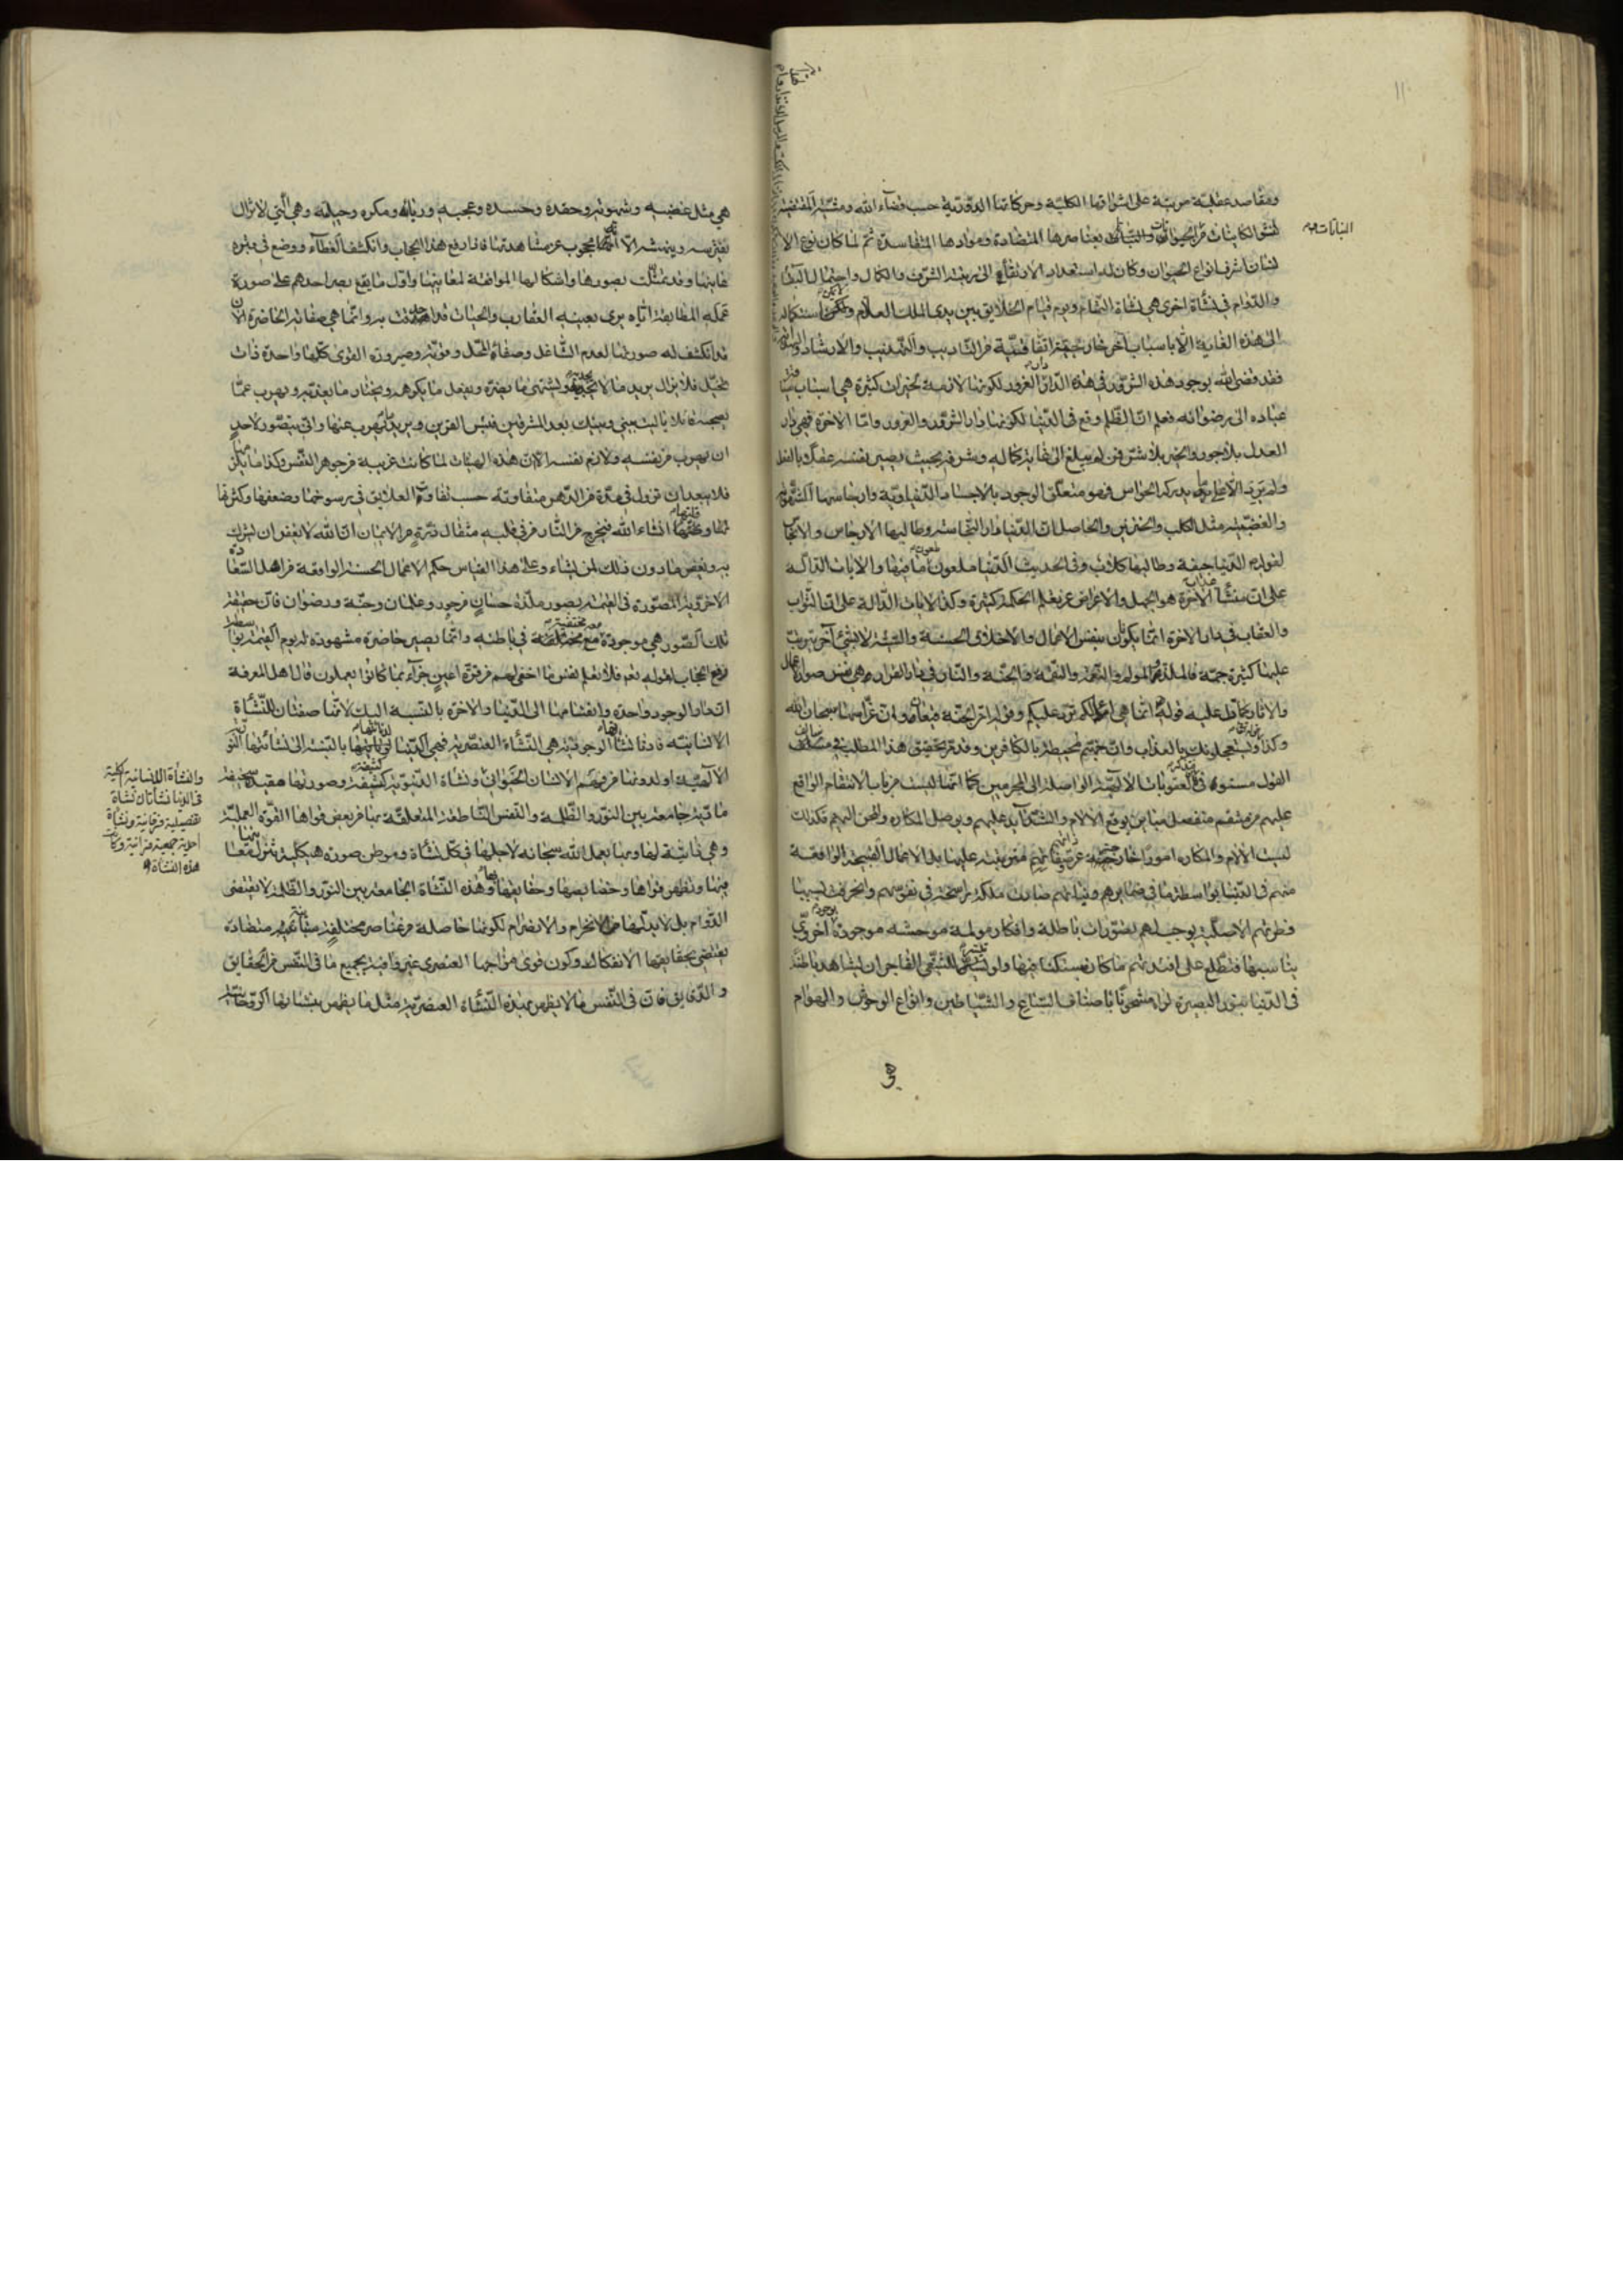 ومقاصد عقلية مرتبة على اشراقاتها الكلية وحركاتها الدورية حسب قضاء الله ومشيته المقتضية
الكاينات من الحيوان والنبات بعناصرها المتضادة وموادها المتفاسدة ثم لما كان نوع الا
نسان اشرف انواع الحيوان وكان له استعداد الارتقاء الى مرتبة الشرف والكمال واحتمال البقاء
والدوام فى نشأة اخرى هي نشأة البقاء ويوم قيام الخلايق بين يدى الملك العلام استكماله
الى هذه الغاية الا باسباب آخر خارجية اتفاقية من التأديب والتهذيب والارشاد
فقد قضى الله بوجود هذه الشرور فى هذه الدار الغرور لكونها لازمة لخيرات كثيرة هي اسباب
عباده الى رضوانه فعلم ان الظلم وقع فى الدنيا لكونها دار الشرور والغرور واما الاخرة فهي دار
العدل بلا جور والخير بلا شر فمن لم يبلغ الى غاية كماله وشرفه بحيث يصير نفسه عقلا بالفعل
ولم ير الا ما يدركه الحواس فهو متعلق الوجود بالاجسام الدنياوية وارجاسها الشهوية
والغضبية مثل الكلب والخنزير والحاصل ان الدنيا دار النجاسة وطالبها الارجاس والانجاس
لقوله الدنيا جيفة وطالبها كلاب وفى الحديث الدنيا ملعونة ملعون ما فيها والايات الدالة
على ان منشأ عذاب الاخرة هو الجهل والاعراض عن تعلم الحكمة كثيرة وكذا الايات الدالة على ان الثواب
والعقاب فى دار الاخرة انما يكونان بنفس الاعمال والاخلاق الحسنة والسيئة لا بشئ آخر يترتب
عليها كثيرة جمة فالملذ والمولم والنعمة والنقمة والجنة والنار فى دار القرار هي نفس صور الاعمال
والاثار كما دل عليه قوله انما هي اعمالكم ترد عليكم وقوله ان الجنة قيعان وان غراسها سبحان الله
وكذا يستعجلونك بالعذاب وان جهنم لمحيطة بالكافرين وقد مر تحقيق هذا المطلب فى
القول مستوفى فى ان العقوبات الالهية الواصلة الى المجرمين كما انها ليست من باب الانتقام الواقع
عليهم من منتقم منفصل مباين يوقع الالام والشدايد عليهم ويوصل المكاره والمحن اليهم فكذلك
ليست الالام والمكاره امورا خارجية عن ذواتهم وصفاتهم مترتبة عليها بل الاعمال القبيحة الواقعة
منهم فى الدنيا بواسطة ما فى ضمايرهم ونياتهم صارت ملكة راسخة فى نفوسهم وانحرفت بسببها
فطرتهم الاصلية يوجب لهم تصورات باطلة وافكار مولمة موحشة موجودة بوجود اخروى
يناسبها فتطلع على افئدتهم ما كان مستكنا فيها ولو تيسر للشقى الفاجر ان يشاهد باطنه
فى الدنيا بنور البصيرة لراه مشحونا باصناف السباع والشياطين وانواع الوحوش والهوام
هى
النباتات
هي مثل غضبه وشهوته وحقده وحسده وعجبه وريائه ومكره وحيلته وهي التي لا تزال
تفترسه وتنهشه الا انه محجوب عن مشاهدتها فاذا رفع هذا الحجاب وانكشف الغطاء ووضع فى قبره
عاينها وقد تمثلت بصورها واشكالها الموافقة لمعانيها واول ما يقع بصر احدهم على صورة
عمله المطابقة اياه يرى بعينه العقارب والحيات قد احدقت به وانما هي صفاته الحاضرة الآن
قد انكشف له صورتها لعدم الشاغل وصفاء المحل وقوته وصيرورة القوى كلها واحدة ذات
تخيل فلا يزال يريد ما لا يحبه ويشتهى ما يضره ويفعل ما يكرهه ويختار ما يعذبه ويهرب عما
يصحبه قائلا يا ليت بينى وبينك بعد المشرقين فبئس القرين ويريد ان يهرب عنها وانى يتصور لاحد
ان يهرب من نفسه ولازم نفسه الا ان هذه الهيئات لما كانت غريبة من جوهر النفس وكذا ما يلزمها
فلا يبعد ان تزول فى مدة من الدهر متفاوتة حسب تفاوت العلايق فى رسوخها وضعفها وكثرتها
وقلتها انشاء الله فيخرج من النار من فى قلبه مثقال ذرة من الايمان ان الله لا يغفر ان يشرك
به ويغفر ما دون ذلك لمن يشاء وعلى هذا القياس حكم الاعمال الحسنة الواقعة من اهل السعادة
الاخروية المصورة فى القيمة بصور ملذة حسان من حور وغلمان وجنة ورضوان فان حقيقة
تلك الصور هي موجودة معه مختفية فى باطنه وانما يصير حاضرة مشهودة له يوم القيمة بواسطة
رفع الحجاب لقوله تعم فلا تعلم نفس ما اخفى لهم من قرة اعين جزاء بما كانوا يعملون قال اهل المعرفة
ان دار الوجود واحدة وانقسامها الى الدنيا والاخرة بالنسبة اليك لانهما صفتان للنشأة
الانسانية فادنى نشاتها الوجودية هي النشاة العنصرية فهي الدنيا لدنائتها بالنسبة الى نشأتها النورية
الالهية او لدنوها من فهم الانسان الحيوانى ونشاة الدنيوية كثيفة وصورتها مقيدة سخيفة
مادتها جامعة بين النور والظلمة والنفس الناطقة المتعلقة بها من بعض قواها القوة العملية
وهي ذاتية لها وبها يعمل الله سبحانه لاجلها فى كل نشأة وموطن صورة هيكلية تنزل معانيها
فيها وتظهر قواها وخصايصها وحقايقها وهذه النشأة الجامعة بين النور والظلمة لا تقتضى
الدوام بل لابد لها من الانخرام والانصرام لكونها حاصلة من عناصر مختلفة متباينة متضادة
تقتضى بحقايقها الانفكاك وكون قوى مزاجها العنصرى غير وافية بجميع ما فى النفس من الحقايق
والدقايق فان فى النفس ما لا يظهر بهذه النشاة العنصرية مثل ما يظهر بنشاتها الروحانية
والنشاة الانسانية الكلية
فى الدنيا نشأتان نشاة
تفصيلية فرقانية ونشاة
احدية جمعية قرآنية وكانت
هذه النشاة